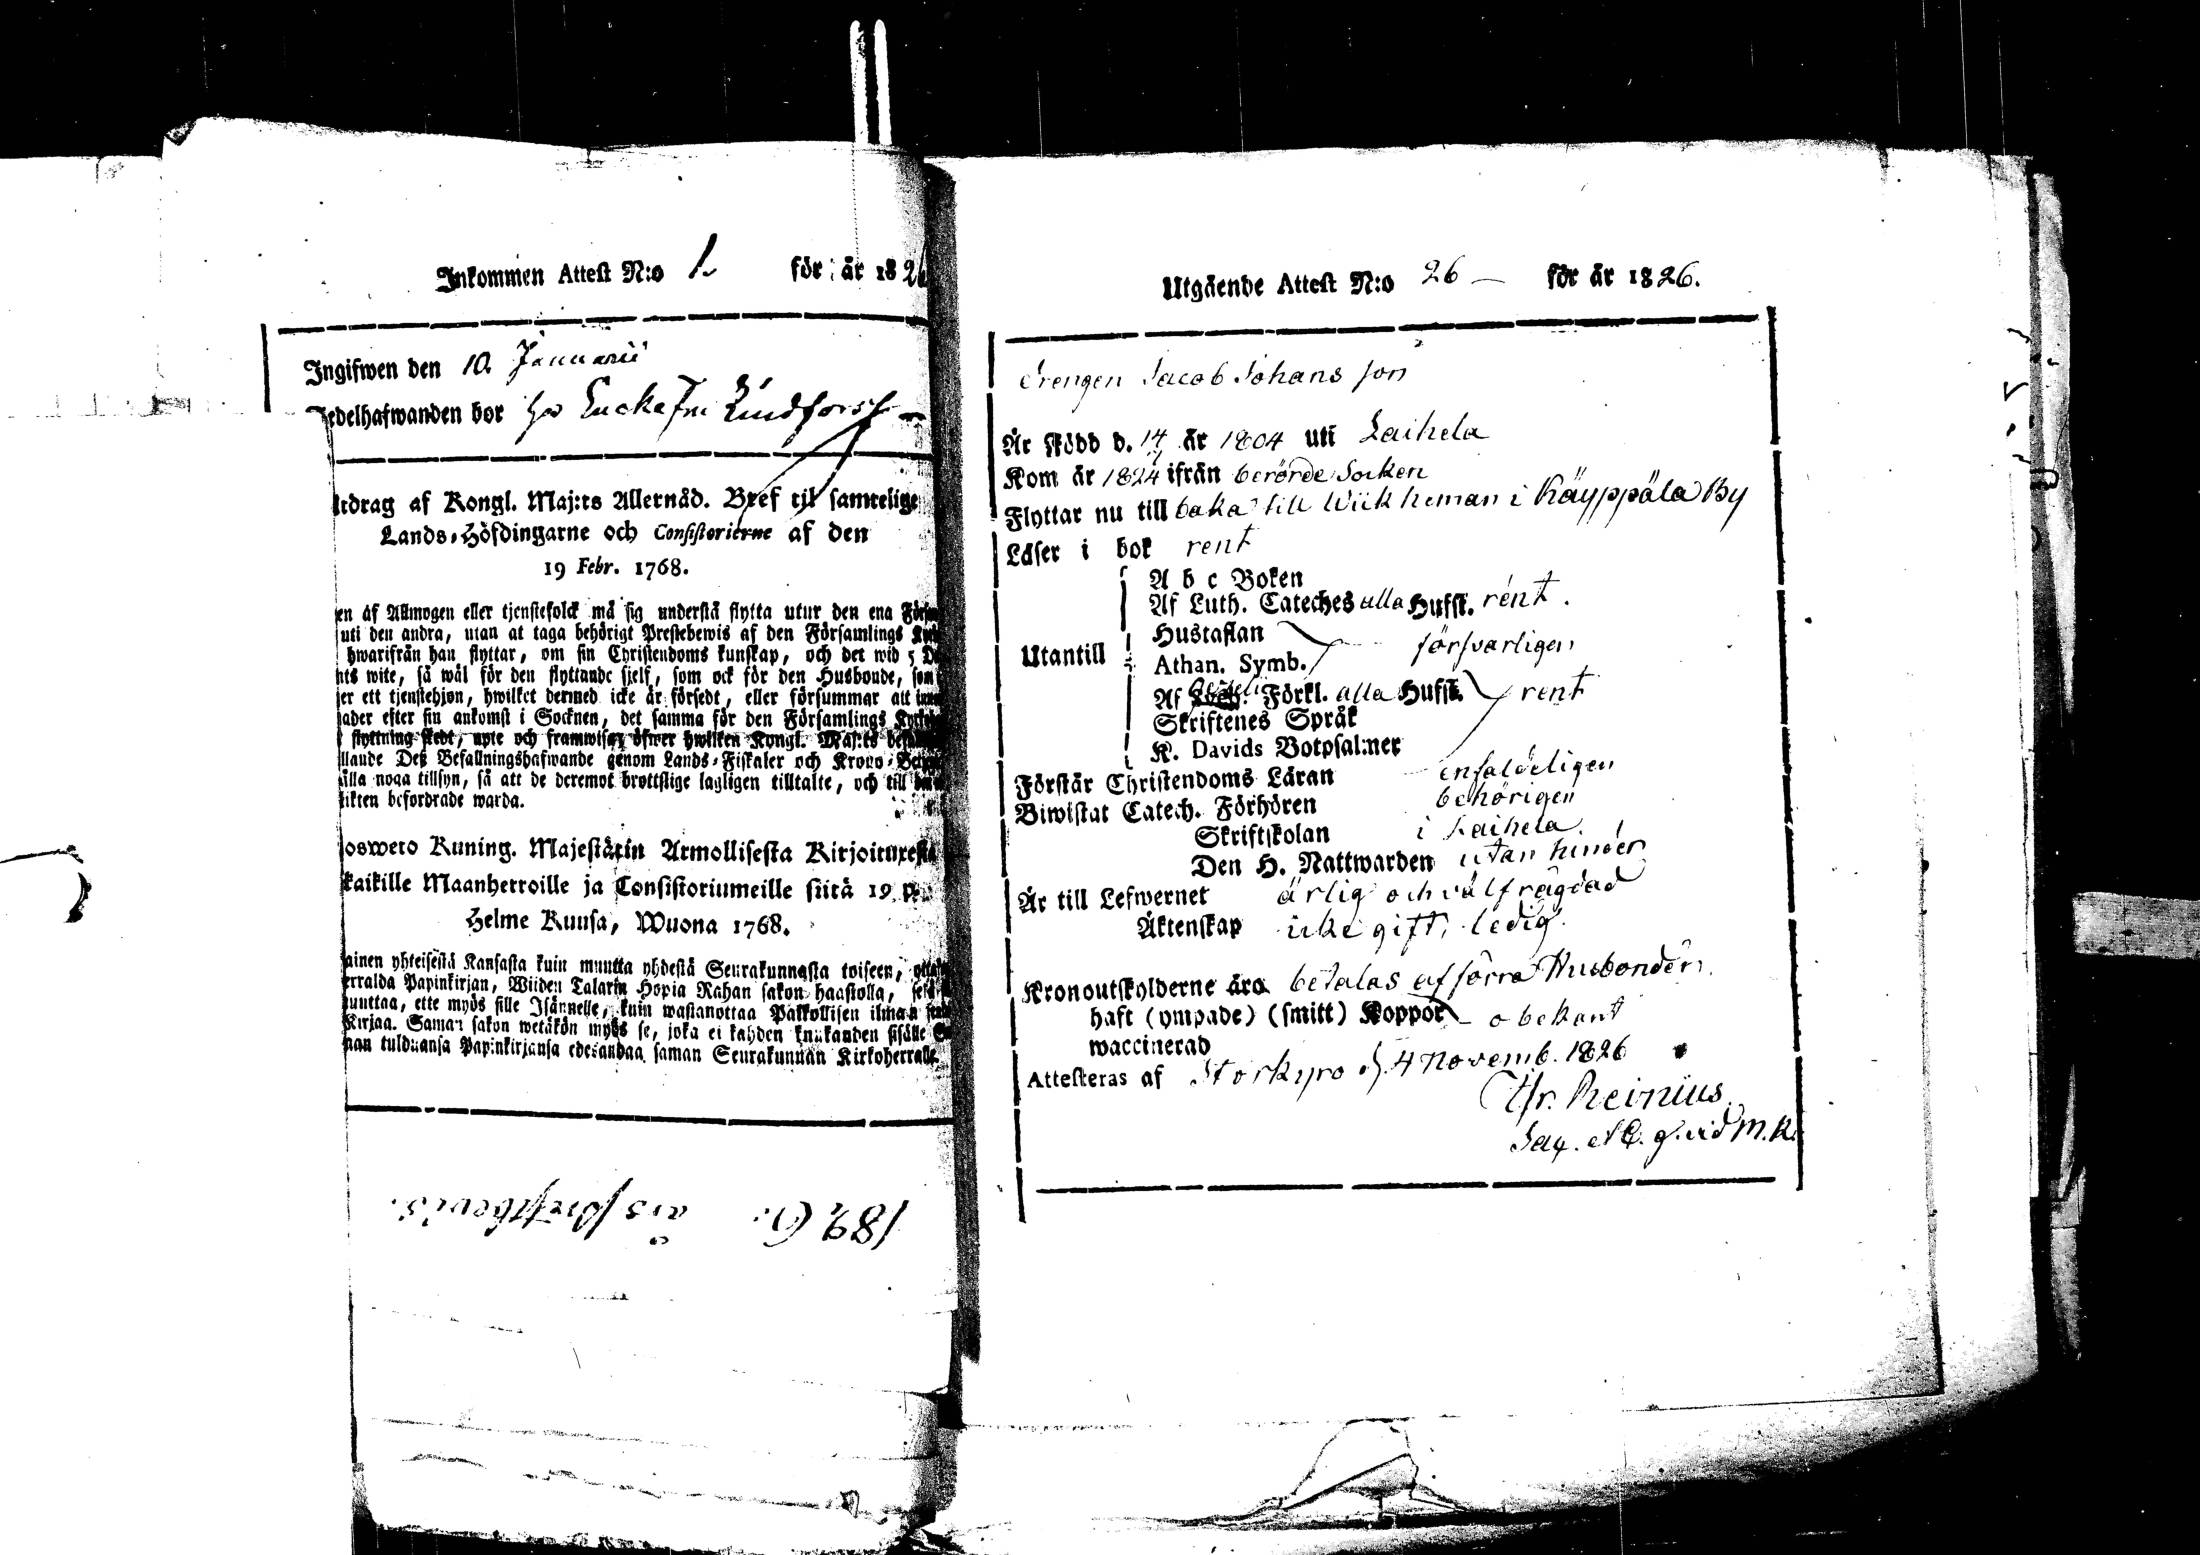 Inkommen Attest N:o 1. för år 182
Ingifwen den 10. Januarii
edelhafwanden bor hos Enckefru Lindfors
tdrag af Kongl. Maj:ts Allernåd. Bref til samtelige
Lands-Höfdingarne och Consistorierne af den
19 Febr. 1768.
en af Allmogen eller tjenstefolck må sig understå flytta utur den ena
uti den andra, utan at taga behörigt Prestebewis af den Församlings
hwarifrån han flyttar, om sin Christendoms kunskap, och det wid 5
wite, så wäl för den flyttande sjelf, som ock för den Husbonde, som
er ett tjenstehjon, hwilket dermed icke är försedt, eller försummar att
ader efter sin ankomst i Socknen, det samma för den Församlings
flyttning skedt, upte och framwisa; öfwer hwilken Kongl. Maj:ts
llande Deß Befallningshafwande genom Lands-Fiskaler och Krono-
ålla noga tillsyn, så att de deremot brottslige lagligen tilltalte, och till
likten befordrade warda.
osweto Kuning. Majestätin Armollisesta Kirjoituxesta
kaikille Maanherroille ja Consistoriumeille siitä 19 p.
Helme Kuusa, Wuona 1768.
ainen yhteisestä Kansasta kuin muutta yhdestä Seurakunnasta toiseen,
erralda Papinkirjan, Wiiden Talarin Hopia Rahan sakon haastolla,
muuttaa, ette myös sille Isännelle, kuin wastanottaa Palkollisen ilman
Kirjaa. Saman sakon wetäkön myös se, joka ei kahden kuukauden sisälle
man tulduansa Papinkirjansa edesandaa saman Seurakunnan Kirkoherralle.
1826. års prestbevis.
Utgående Attest N:o 26 för år 1826.
Drengen Jacob Johans son
Är född d. 14/7 år 1804 uti Laihela
Kom år 1824 ifrån berörde Socken
Flyttar nu till baka till Wiik heman i Käyppälä By
Läser i bok rent
A b c Boken
Af Luth. Cateches alla Hufst. rent.
Hustaflan
Utantill Athan. Symb. försvarligen
Af Förkl. alla Hufst. rent
Skriftenes Språk
K. Davids Botpsalmer
Förstår Christendoms Läran enfaldeligen
Biwistat Catech. Förhören behörigen
Skriftskolan i Laihela.
Den H. Nattwarden utan hinder
Är till Lefwernet ärlig och välfrägdad
Äktenskap icke gift, ledig.
Kronoutskylderne äro betalas af förra Husbonden.
haft (ympade) (smitt) Koppor obekant
waccinerad
Attesteras af Storkyro d. 4 Novemb. 1826
Reinius